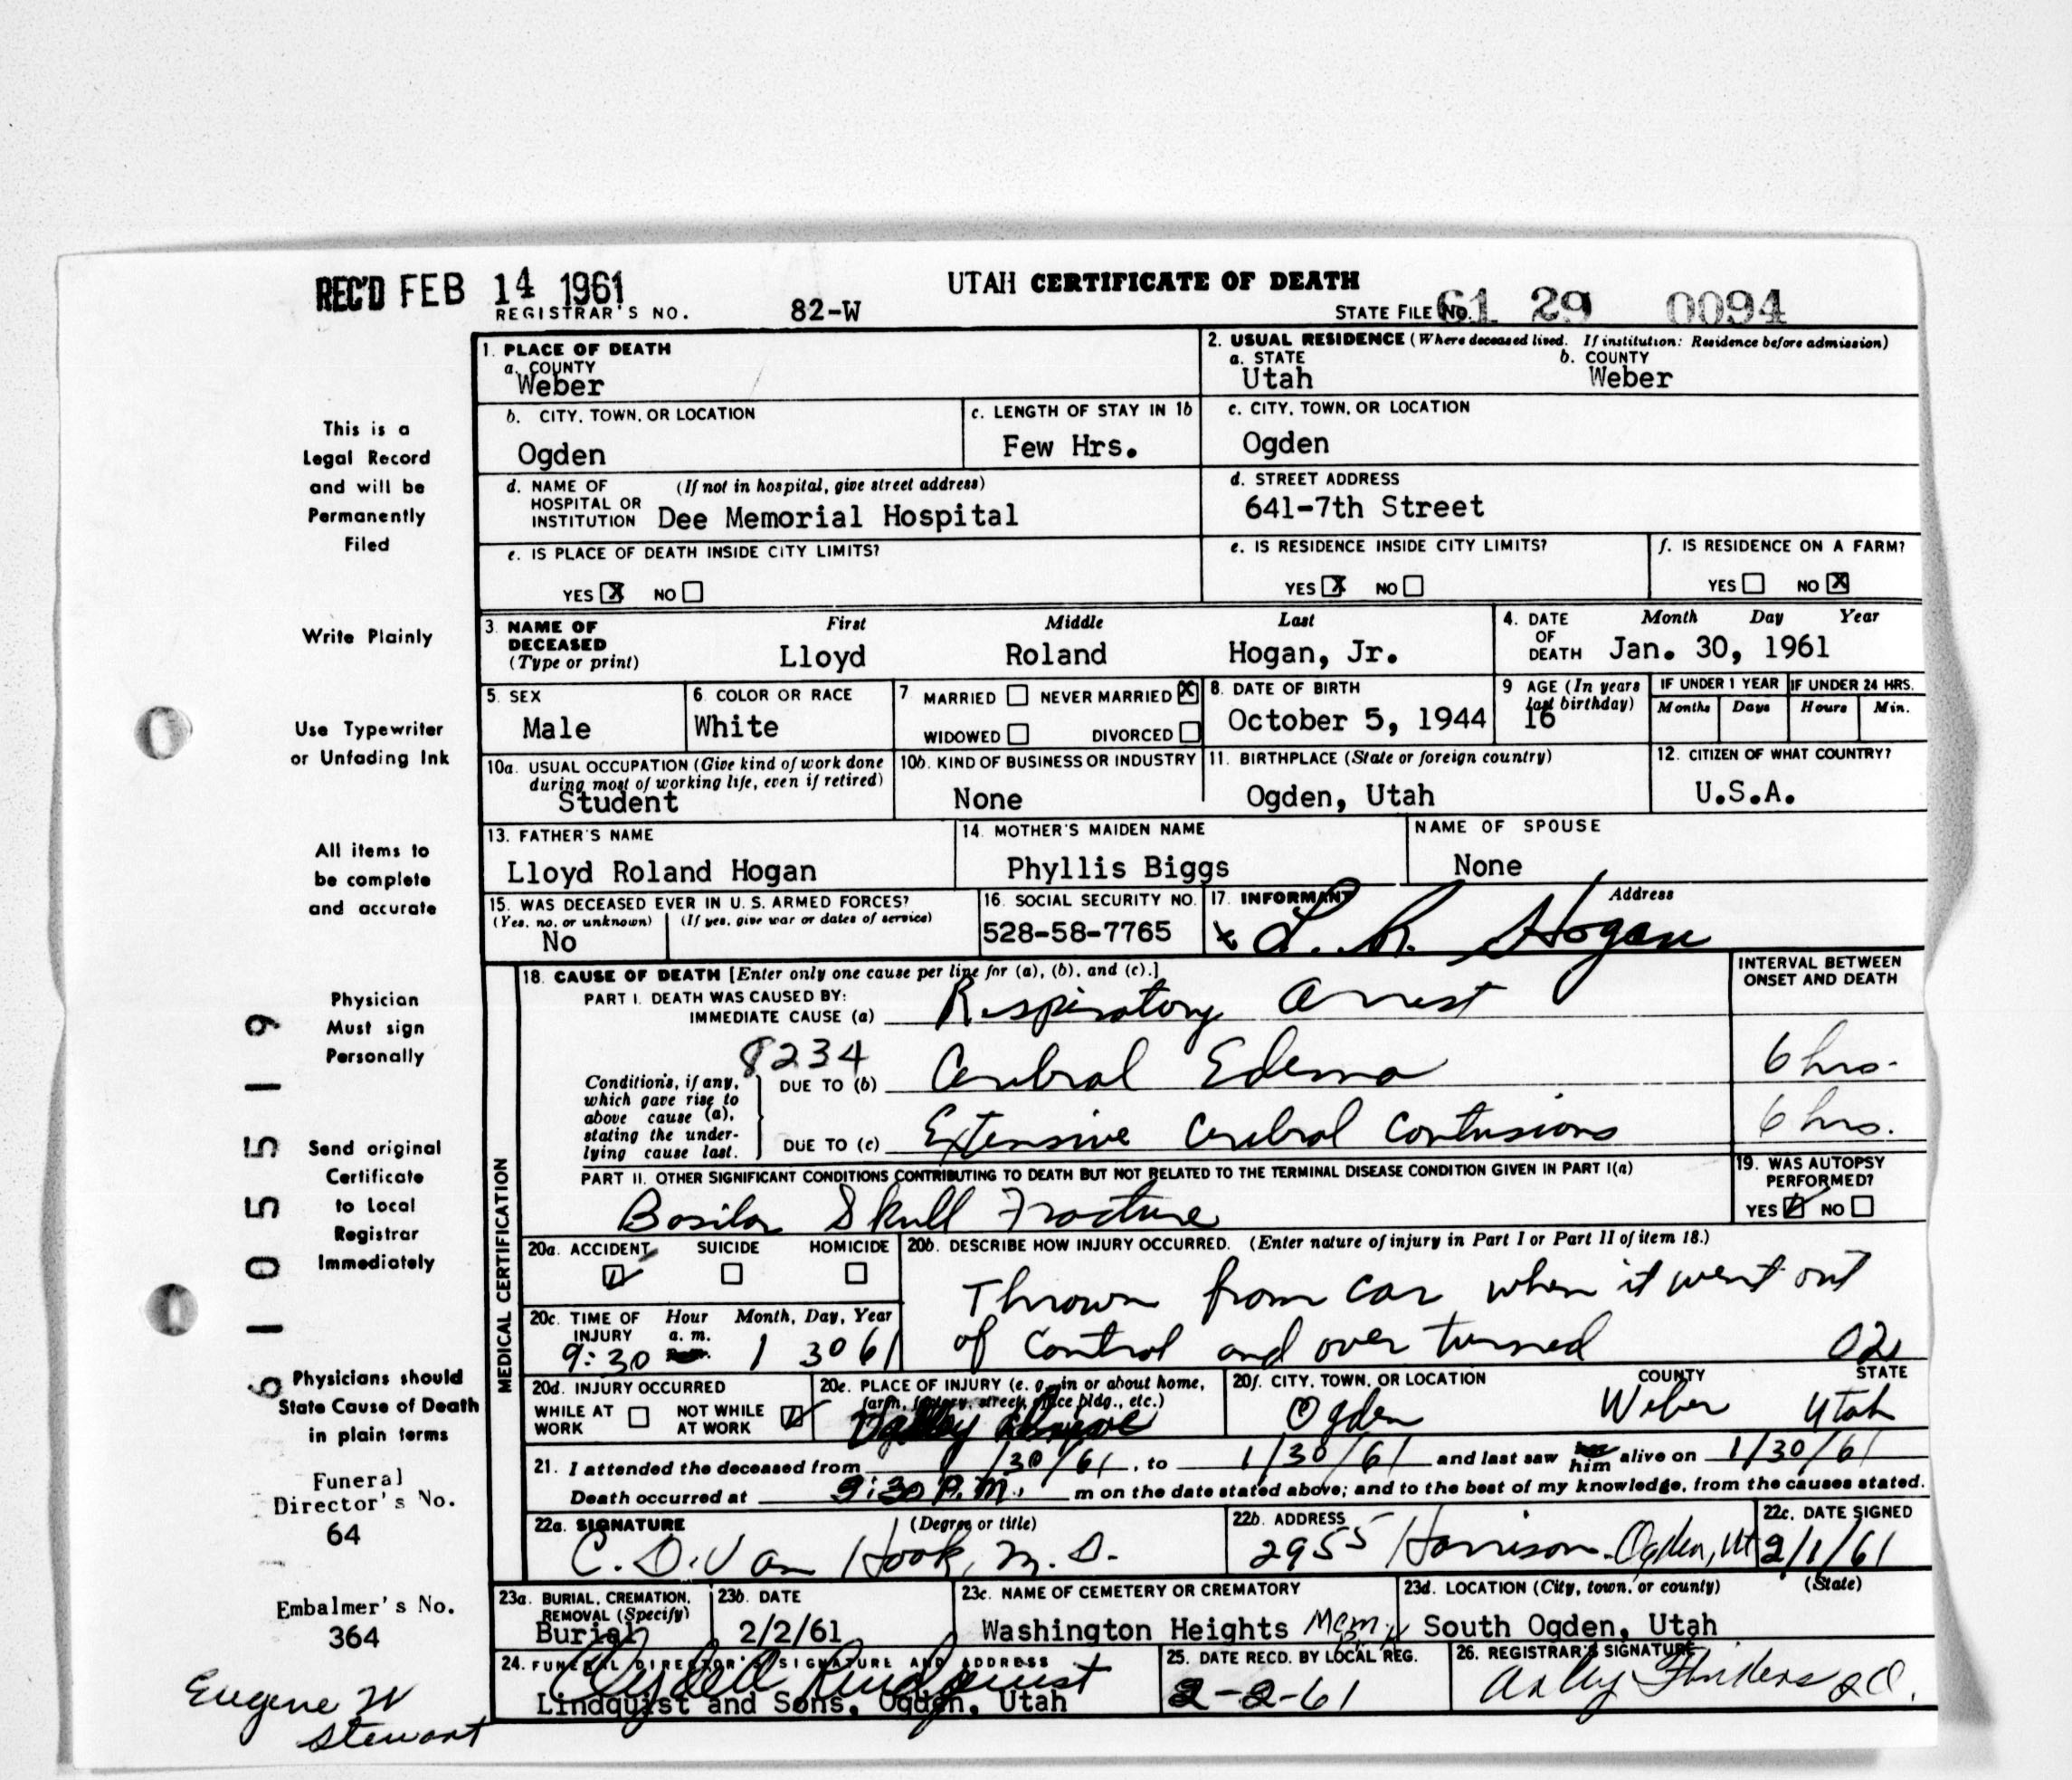 REC'D FEB 14 1961
UTAH CERTIFICATE OF DEATH
REGISTRAR'S NO. 82-W
STATE FILE No. 61 29 0094
This is a
Legal Record
and will be
Permanently
Filed
Write Plainly
Use Typewriter
or Unfading Ink
All items to
be complete
and accurate
Physician
Must sign
Personally
Send original
Certificate
to Local
Registrar
Immediately
Physicians should
State Cause of Death
in plain terms
Funeral
Director's No.
64
Embalmer's No.
364
Eugene W
Stewart
6105519
1. PLACE OF DEATH
a. COUNTY
Weber
2. USUAL RESIDENCE (Where deceased lived. If institution: Residence before admission)
a. STATE b. COUNTY
Utah Weber
b. CITY, TOWN, OR LOCATION
Ogden
c. LENGTH OF STAY IN 1b
Few Hrs.
c. CITY, TOWN, OR LOCATION
Ogden
d. NAME OF (If not in hospital, give street address)
HOSPITAL OR
INSTITUTION Dee Memorial Hospital
d. STREET ADDRESS
641-7th Street
e. IS PLACE OF DEATH INSIDE CITY LIMITS?
YES X NO
e. IS RESIDENCE INSIDE CITY LIMITS?
YES X NO
f. IS RESIDENCE ON A FARM?
YES NO X
3. NAME OF First Middle Last
DECEASED
(Type or print) Lloyd Roland Hogan, Jr.
4. DATE Month Day Year
OF
DEATH Jan. 30, 1961
5. SEX
Male
6. COLOR OR RACE
White
7. MARRIED NEVER MARRIED X
WIDOWED DIVORCED
8. DATE OF BIRTH
October 5, 1944
9 AGE (In years
last birthday)
16
IF UNDER 1 YEAR IF UNDER 24 HRS.
Months Days Hours Min.
10a. USUAL OCCUPATION (Give kind of work done
during most of working life, even if retired)
Student
10b. KIND OF BUSINESS OR INDUSTRY
None
11. BIRTHPLACE (State or foreign country)
Ogden, Utah
12. CITIZEN OF WHAT COUNTRY?
U.S.A.
13. FATHER'S NAME
Lloyd Roland Hogan
14. MOTHER'S MAIDEN NAME
Phyllis Biggs
NAME OF SPOUSE
None
15. WAS DECEASED EVER IN U.S. ARMED FORCES?
(Yes, no, or unknown) (If yes, give war or dates of service)
No
16. SOCIAL SECURITY NO.
528-58-7765
17. INFORMANT Address
x L. R. Hogan
MEDICAL CERTIFICATION
18. CAUSE OF DEATH [Enter only one cause per line for (a), (b), and (c).]
INTERVAL BETWEEN
ONSET AND DEATH
PART I. DEATH WAS CAUSED BY:
IMMEDIATE CAUSE (a) Respiratory Arrest
8234
Conditions, if any,
which gave rise to
above cause (a),
stating the under-
lying cause last.
DUE TO (b) Cerebral Edema 6 hrs.
DUE TO (c) Extensive Cerebral Contusions 6 hrs.
PART II. OTHER SIGNIFICANT CONDITIONS CONTRIBUTING TO DEATH BUT NOT RELATED TO THE TERMINAL DISEASE CONDITION GIVEN IN PART I(a)
Basilar Skull Fracture
19. WAS AUTOPSY
PERFORMED?
YES NO
20a. ACCIDENT SUICIDE HOMICIDE
20b. DESCRIBE HOW INJURY OCCURRED. (Enter nature of injury in Part I or Part II of item 18.)
Thrown from car when it went out
of control and over turned 02
20c. TIME OF Hour Month, Day, Year
INJURY a. m.
9:30 1 30 61
20d. INJURY OCCURRED
WHILE AT WORK NOT WHILE AT WORK
20e. PLACE OF INJURY (e. g., in or about home,
farm, factory, street, office bldg., etc.)
20f. CITY, TOWN, OR LOCATION COUNTY STATE
Ogden Weber Utah
21. I attended the deceased from 1/30/61, to 1/30/61 and last saw him alive on 1/30/61
Death occurred at 9:30 P.M. m on the date stated above; and to the best of my knowledge, from the causes stated.
22a. SIGNATURE (Degree or title)
C. D. Van Hook, M. D.
22b. ADDRESS
2955 Harrison - Ogden, Ut
22c. DATE SIGNED
2/1/61
23a. BURIAL, CREMATION,
REMOVAL (Specify)
Burial
23b. DATE
2/2/61
23c. NAME OF CEMETERY OR CREMATORY
Washington Heights Mem.
23d. LOCATION (City, town, or county) (State)
South Ogden, Utah
24. FUNERAL DIRECTOR'S SIGNATURE AND ADDRESS
Lindquist
Lindquist and Sons, Ogden, Utah
25. DATE RECD. BY LOCAL REG.
2-2-61
26. REGISTRAR'S SIGNATURE